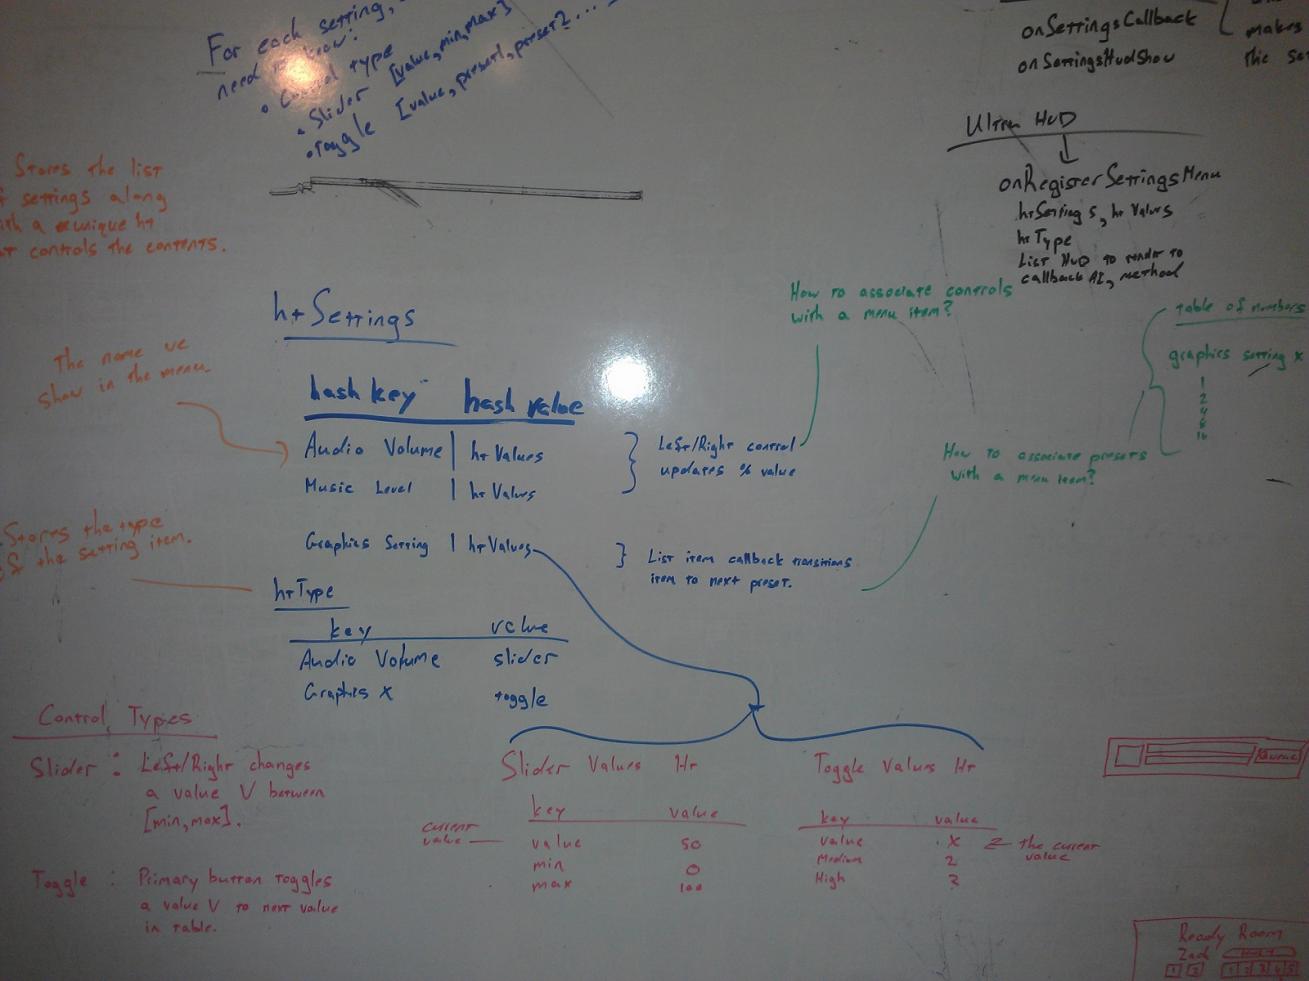 For each setting,
need
Control type
• Slider [value, min, max]
• Toggle [value, preset1, preset2...
onSettingsCallback
onSettingsHudShow
makes
the
Ultra HuD
onRegisterSettingsMenu
htSettings, htValues
htType
List HuD to render to
callback AI, method
Stores the list
settings along
with a unique ht
controls the contents.
htSettings
How to associate controls
with a menu item?
table of numbers
graphics setting x
1
2
4
8
16
The name we
show in the menu.
hash key hash value
Audio Volume | htValues
Music Level | htValues
} Left/Right control
updates % value
How to associate presets
with a menu item?
Graphics Setting | htValues
} List item callback transitions
item to next preset.
Stores the type
of the setting item.
htType
key value
Audio Volume slider
Graphics X toggle
Control Types
Slider : Left/Right changes
a value V between
[min, max].
Toggle : Primary button toggles
a value V to next value
in table.
Slider Values Ht
key value
current
value
value 50
min 0
max 100
Toggle Values Ht
key value
value X
the current
value
Medium 2
High
Ready Room
Zach
1 2
1 2 3 4 5